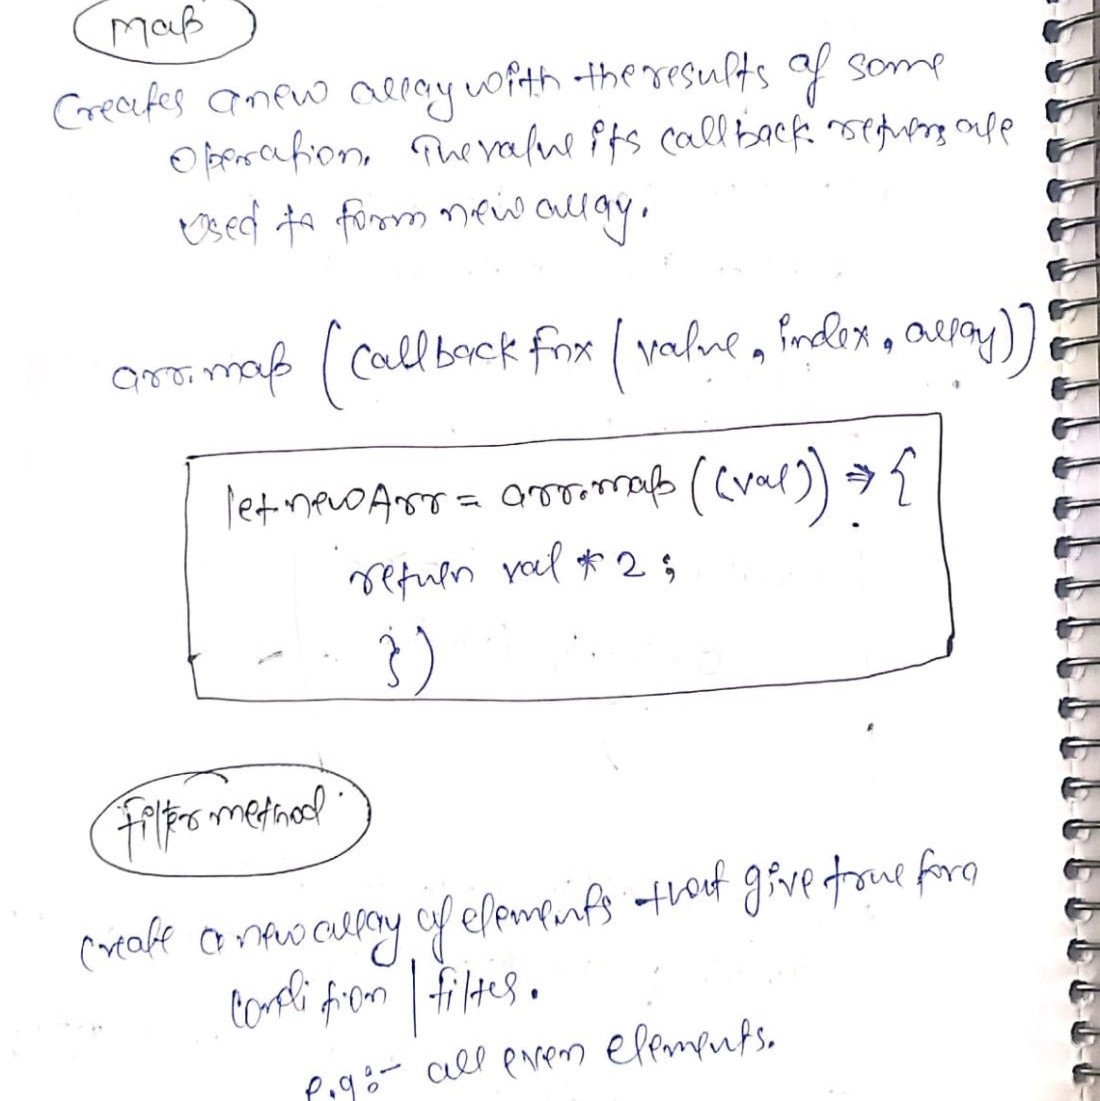 map
Creates a new array with the results of some
operation. The value its callback returns are
used to form new array.
arr.map ( callback fnx ( value, index, array))
let newArr = arr.map ((val)) => {
return val * 2 ;
})
filter method
create a new array of elements that give true for a
condition | filter.
e.g:- all even elements.